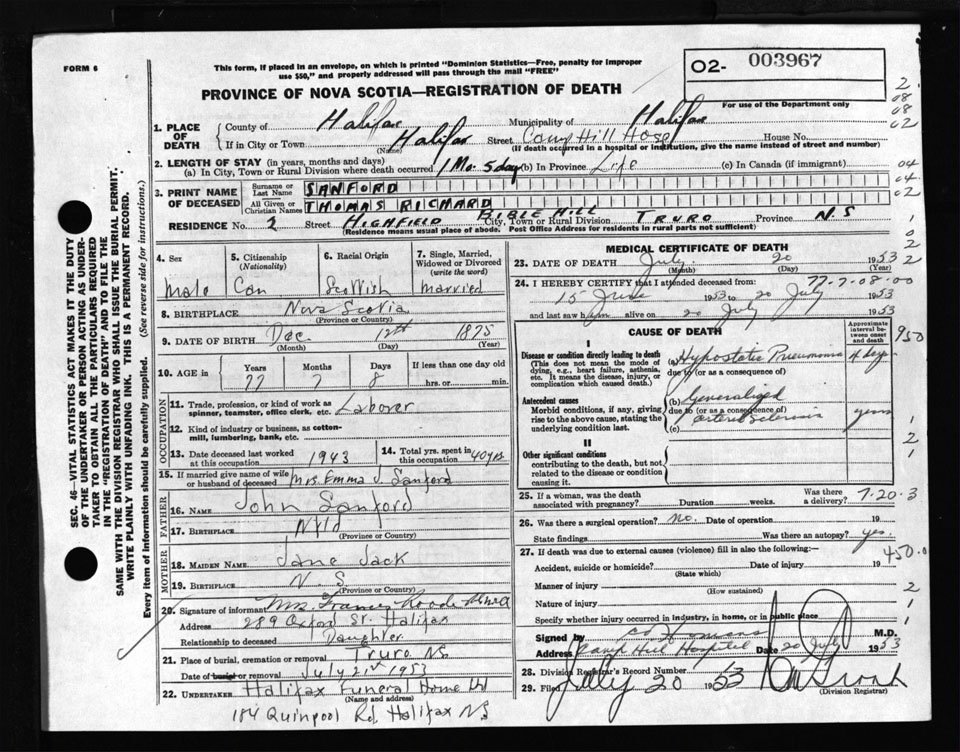 FORM 6
This form, if placed in an envelope, on which is printed "Dominion Statistics—Free, penalty for improper
use $50," and properly addressed will pass through the mail "FREE"
O2- 003967
PROVINCE OF NOVA SCOTIA—REGISTRATION OF DEATH
For use of the Department only
1. PLACE OF DEATH
County of Halifax Municipality of Halifax
If in City or Town Halifax (Name) Street Camp Hill Hosp House No.
(If death occurred in a hospital or institution, give the name instead of street and number)
2. LENGTH OF STAY (in years, months and days)
(a) In City, Town or Rural Division where death occurred 1 Mo 5 day (b) In Province Life (c) In Canada (if immigrant)
3. PRINT NAME OF DECEASED
Surname or Last Name SANFORD
All Given or Christian Names THOMAS RICHARD
RESIDENCE No. 2 Street HIGHFIELD BIBLE HILL City, Town or Rural Division TRURO Province N.S
(Residence means usual place of abode. Post Office Address for residents in rural parts not sufficient)
4. Sex Male
5. Citizenship (Nationality) Can
6. Racial Origin Scottish
7. Single, Married, Widowed or Divorced (write the word) married
8. BIRTHPLACE Nova Scotia
(Province or Country)
9. DATE OF BIRTH Dec. 12th 1875
(Month) (Day) (Year)
10. AGE in Years 77 Months 7 Days 8 If less than one day old hrs. or min.
OCCUPATION
11. Trade, profession, or kind of work as spinner, teamster, office clerk, etc. Laborer
12. Kind of industry or business, as cotton-mill, lumbering, bank, etc.
13. Date deceased last worked at this occupation 1943
14. Total yrs. spent in this occupation 40 yrs
15. If married give name of wife or husband of deceased Mrs. Emma J. Sanford
FATHER
16. NAME John Sanford
17. BIRTHPLACE Nfld
(Province or Country)
MOTHER
18. MAIDEN NAME Jane Jack
19. BIRTHPLACE N. S
(Province or Country)
20. Signature of informant Mrs. Frances
Address 289 Oxford St. Halifax
Relationship to deceased Daughter
21. Place of burial, cremation or removal Truro NS
Date of burial or removal July 21st 1953
22. UNDERTAKER Halifax Funeral Home Ltd
(Name and address)
184 Quinpool Rd. Halifax NS
MEDICAL CERTIFICATE OF DEATH
23. DATE OF DEATH July 20 1953
(Month) (Day) (Year)
24. I HEREBY CERTIFY that I attended deceased from 77-7-08-00
15 June 1953 to 20 July 1953
and last saw him alive on 20 July 1953
CAUSE OF DEATH
Approximate interval between onset and death
I
Disease or condition directly leading to death (a) Hypostatic Pneumonia 4 days
(This does not mean the mode of dying, e.g., heart failure, asthenia, etc. It means the disease, injury, or complication which caused death.)
due to (or as a consequence of)
Antecedent causes
Morbid conditions, if any, giving rise to the above cause, stating the underlying condition last.
(b) Generalized
due to (or as a consequence of)
arteriosclerosis years
(c)
II
Other significant conditions
contributing to the death, but not related to the disease or condition causing it.
25. If a woman, was the death associated with pregnancy? Duration weeks. Was there a delivery? 7-20-3
26. Was there a surgical operation? no. Date of operation 19
State findings Was there an autopsy? yes.
27. If death was due to external causes (violence) fill in also the following:— 450.0
Accident, suicide or homicide? Date of injury 19
(State which)
Manner of injury
(How sustained)
Nature of injury
Specify whether injury occurred in industry, in home, or in public place
Signed by M.D.
Address Camp Hill Hospital Date 20 July 1953
28. Division Registrar's Record Number
29. Filed July 20 1953
(Division Registrar)
2
08
08
02
04
04
02
0
2
2
950
1
2
1
2
1
SEC. 46- VITAL STATISTICS ACT MAKES IT THE DUTY
OF THE UNDERTAKER OR PERSON ACTING AS UNDER-
TAKER TO OBTAIN ALL THE PARTICULARS REQUIRED
IN THE "REGISTRATION OF DEATH" AND TO FILE THE
SAME WITH THE DIVISION REGISTRAR WHO SHALL ISSUE THE BURIAL PERMIT.
WRITE PLAINLY WITH UNFADING INK. THIS IS A PERMANENT RECORD.
Every item of information should be carefully supplied. (See reverse side for instructions.)